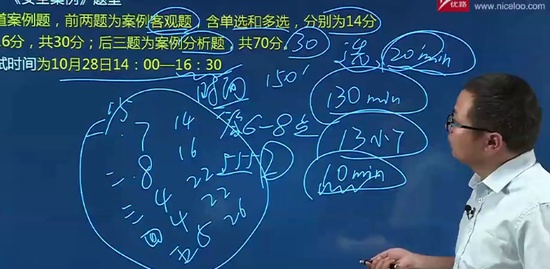 《安全案例》题型
道案例题，前两题为案例客观题，含单选和多选，分别为14分
16分，共30分；后三题为案例分析题，共70分。30
试时间为10月28日14：00—16：30
优路 www.niceloo.com
选 20min
时间 150'
130min
6-8点
13小丁
60min
一 7 14
二 8 16
三 4 22
四 4 22
五 5 26